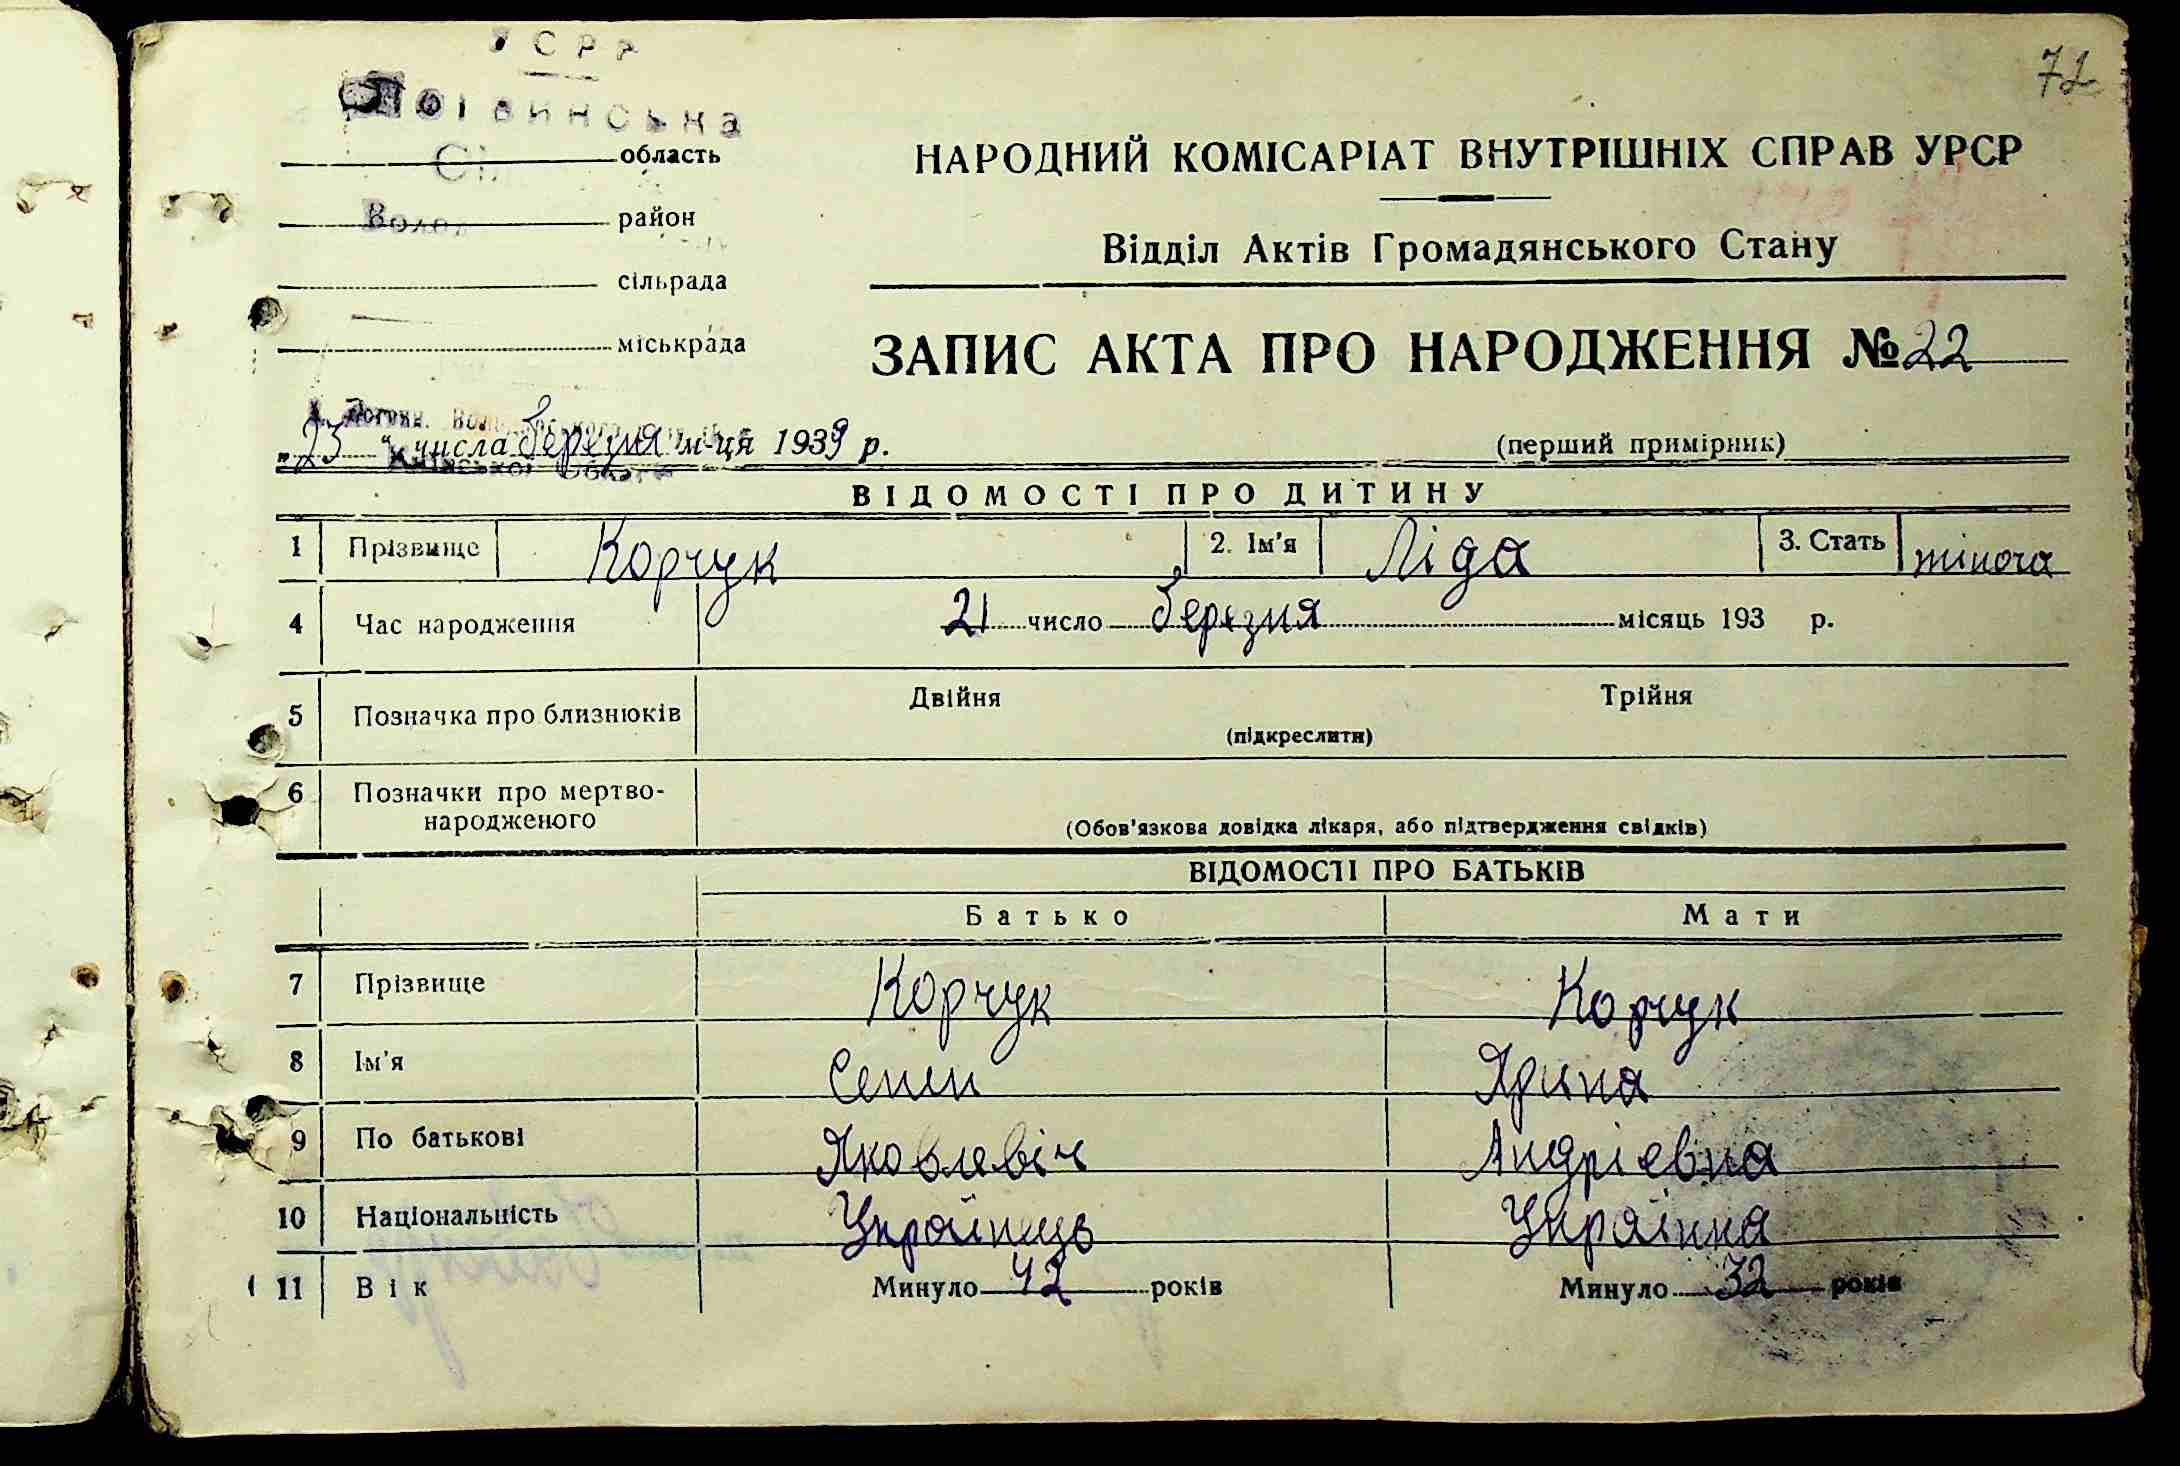 УСРР
72
Логвинська
область
НАРОДНИЙ КОМІСАРІАТ ВНУТРІШНІХ СПРАВ УРСР
район
Відділ Актів Громадянського Стану
сільрада
міськрада
ЗАПИС АКТА ПРО НАРОДЖЕННЯ № 22
„23“ числа березня м-ця 1939 р.
(перший примірник)
Київської області
ВІДОМОСТІ ПРО ДИТИНУ
1 Прізвище Корчук 2. Ім'я Ліда 3. Стать жіноча
4 Час народження 21 число березня місяць 193 р.
5 Позначка про близнюків Двійня Трійня
(підкреслити)
6 Позначки про мертво-
народженого
(Обов'язкова довідка лікаря, або підтвердження свідків)
ВІДОМОСТІ ПРО БАТЬКІВ
Батько Мати
7 Прізвище Корчук Корчук
8 Ім'я Семен Ярина
9 По батькові Яковлевіч Андрієвна
10 Національність Українець Українка
11 Вік Минуло 42 років Минуло 32 років